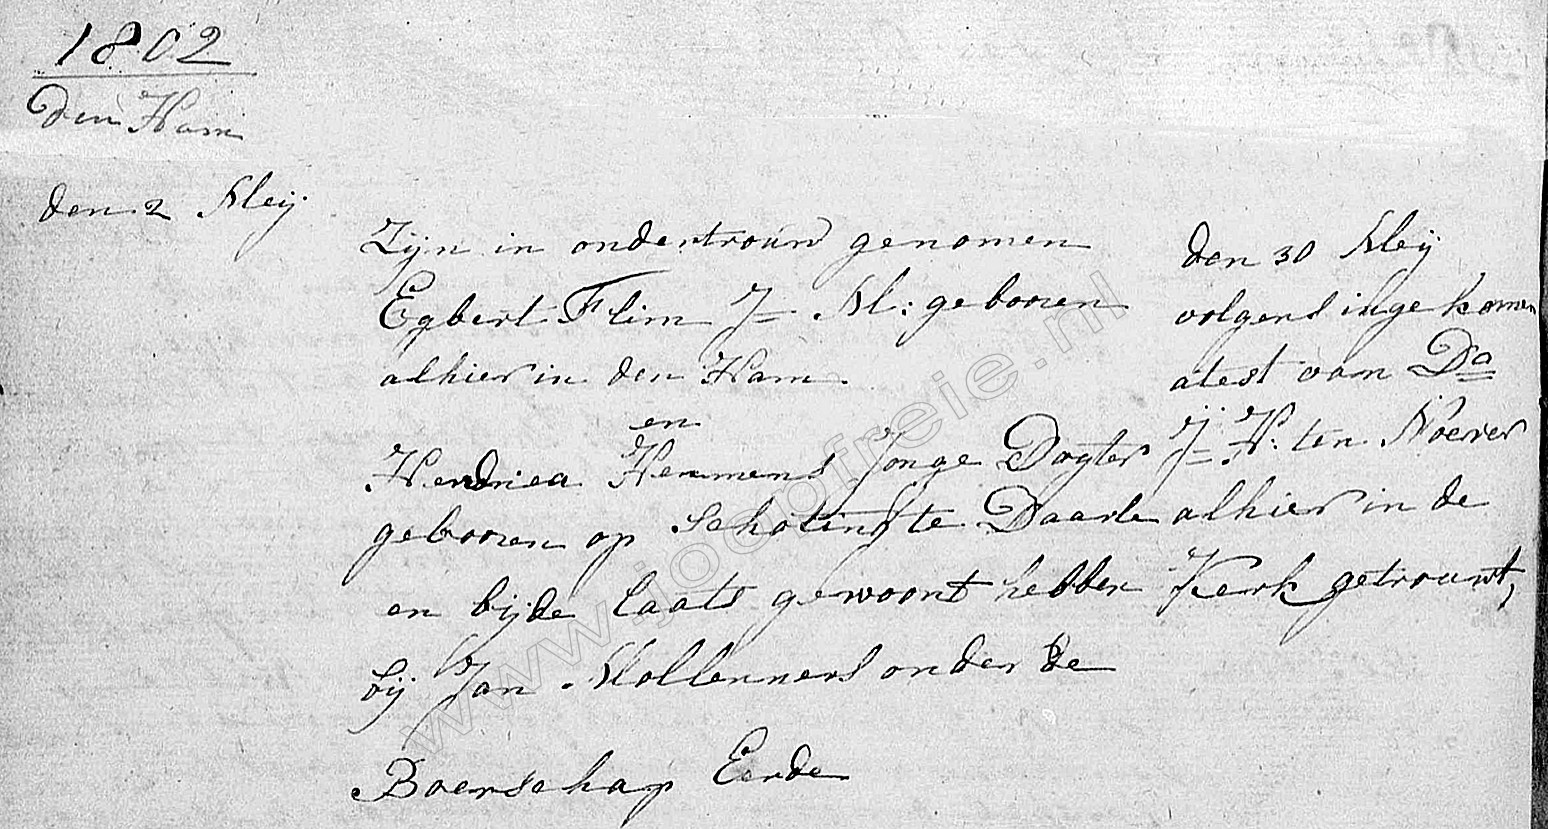 1802
den Ham
den 2 Meij.
Zijn in ondertrouw genomen
Egbert Flim J= M: gebooren
alhier in den Ham.
en
Hendrica Hemmens Jonge Dogter
gebooren op Scholinh te Daarle
en bijde laats gewoont hebben
bij Jan Mollenners onder de
Boerschap Eerde
den 30 Meij
volgens ingekomen
atest vam Da
J= H: ten
alhier in de
Kerk getrouwt,
www.joopfreie.nl